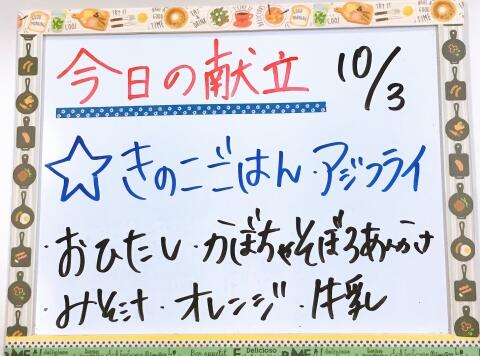 今日の献立 10/3
☆きのこごはん・アジフライ
・おひたし・かぼちゃそぼろあんかけ
・みそ汁・オレンジ・牛乳